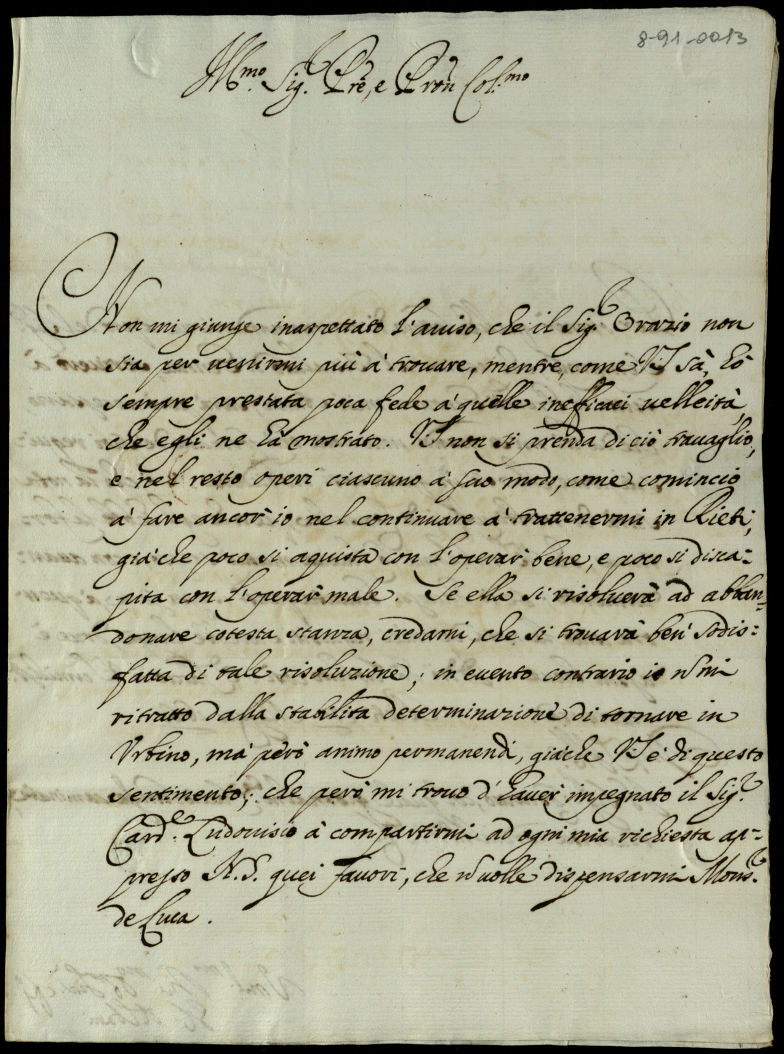 8-91-0013
Ill.mo Sig.r Prẽ, e Prõn Col.mo
Non mi giunge inaspettato l'auiso, che il Sig.r Orazio non
sia per uenirmi più à trouare, mentre, come VS sà, hò
sempre prestata poca fede à quelle inefficaci uelleità,
che egli ne hà mostrato. VS non si prenda di ciò trauaglio,
e nel resto operi ciascuno à suo modo, come comincio
à fare ancor' io nel continuare à trattenermi in Rieti,
già che poco si aquista con l'operar' bene, e poco si disca=
pita con l'operar' male. Se ella si risoluerà ad abban=
donare cotesta stanza, credami, che si trouarà ben' sodis=
fatta di tale risoluzione; in euento contrario io nõ mi
ritratto dalla stabilita determinazione di tornare in
Vrbino, mà però animo permanendi, già che VS è di questo
sentimento; che però mi trouo d'hauer' impegnato il Sig.r
Card.e Ludouisio à compartirmi ad ogni mia richiesta ap=
presso N.S. quei fauori, che nõ uolle dispensarmi Mons.r
de Luca.